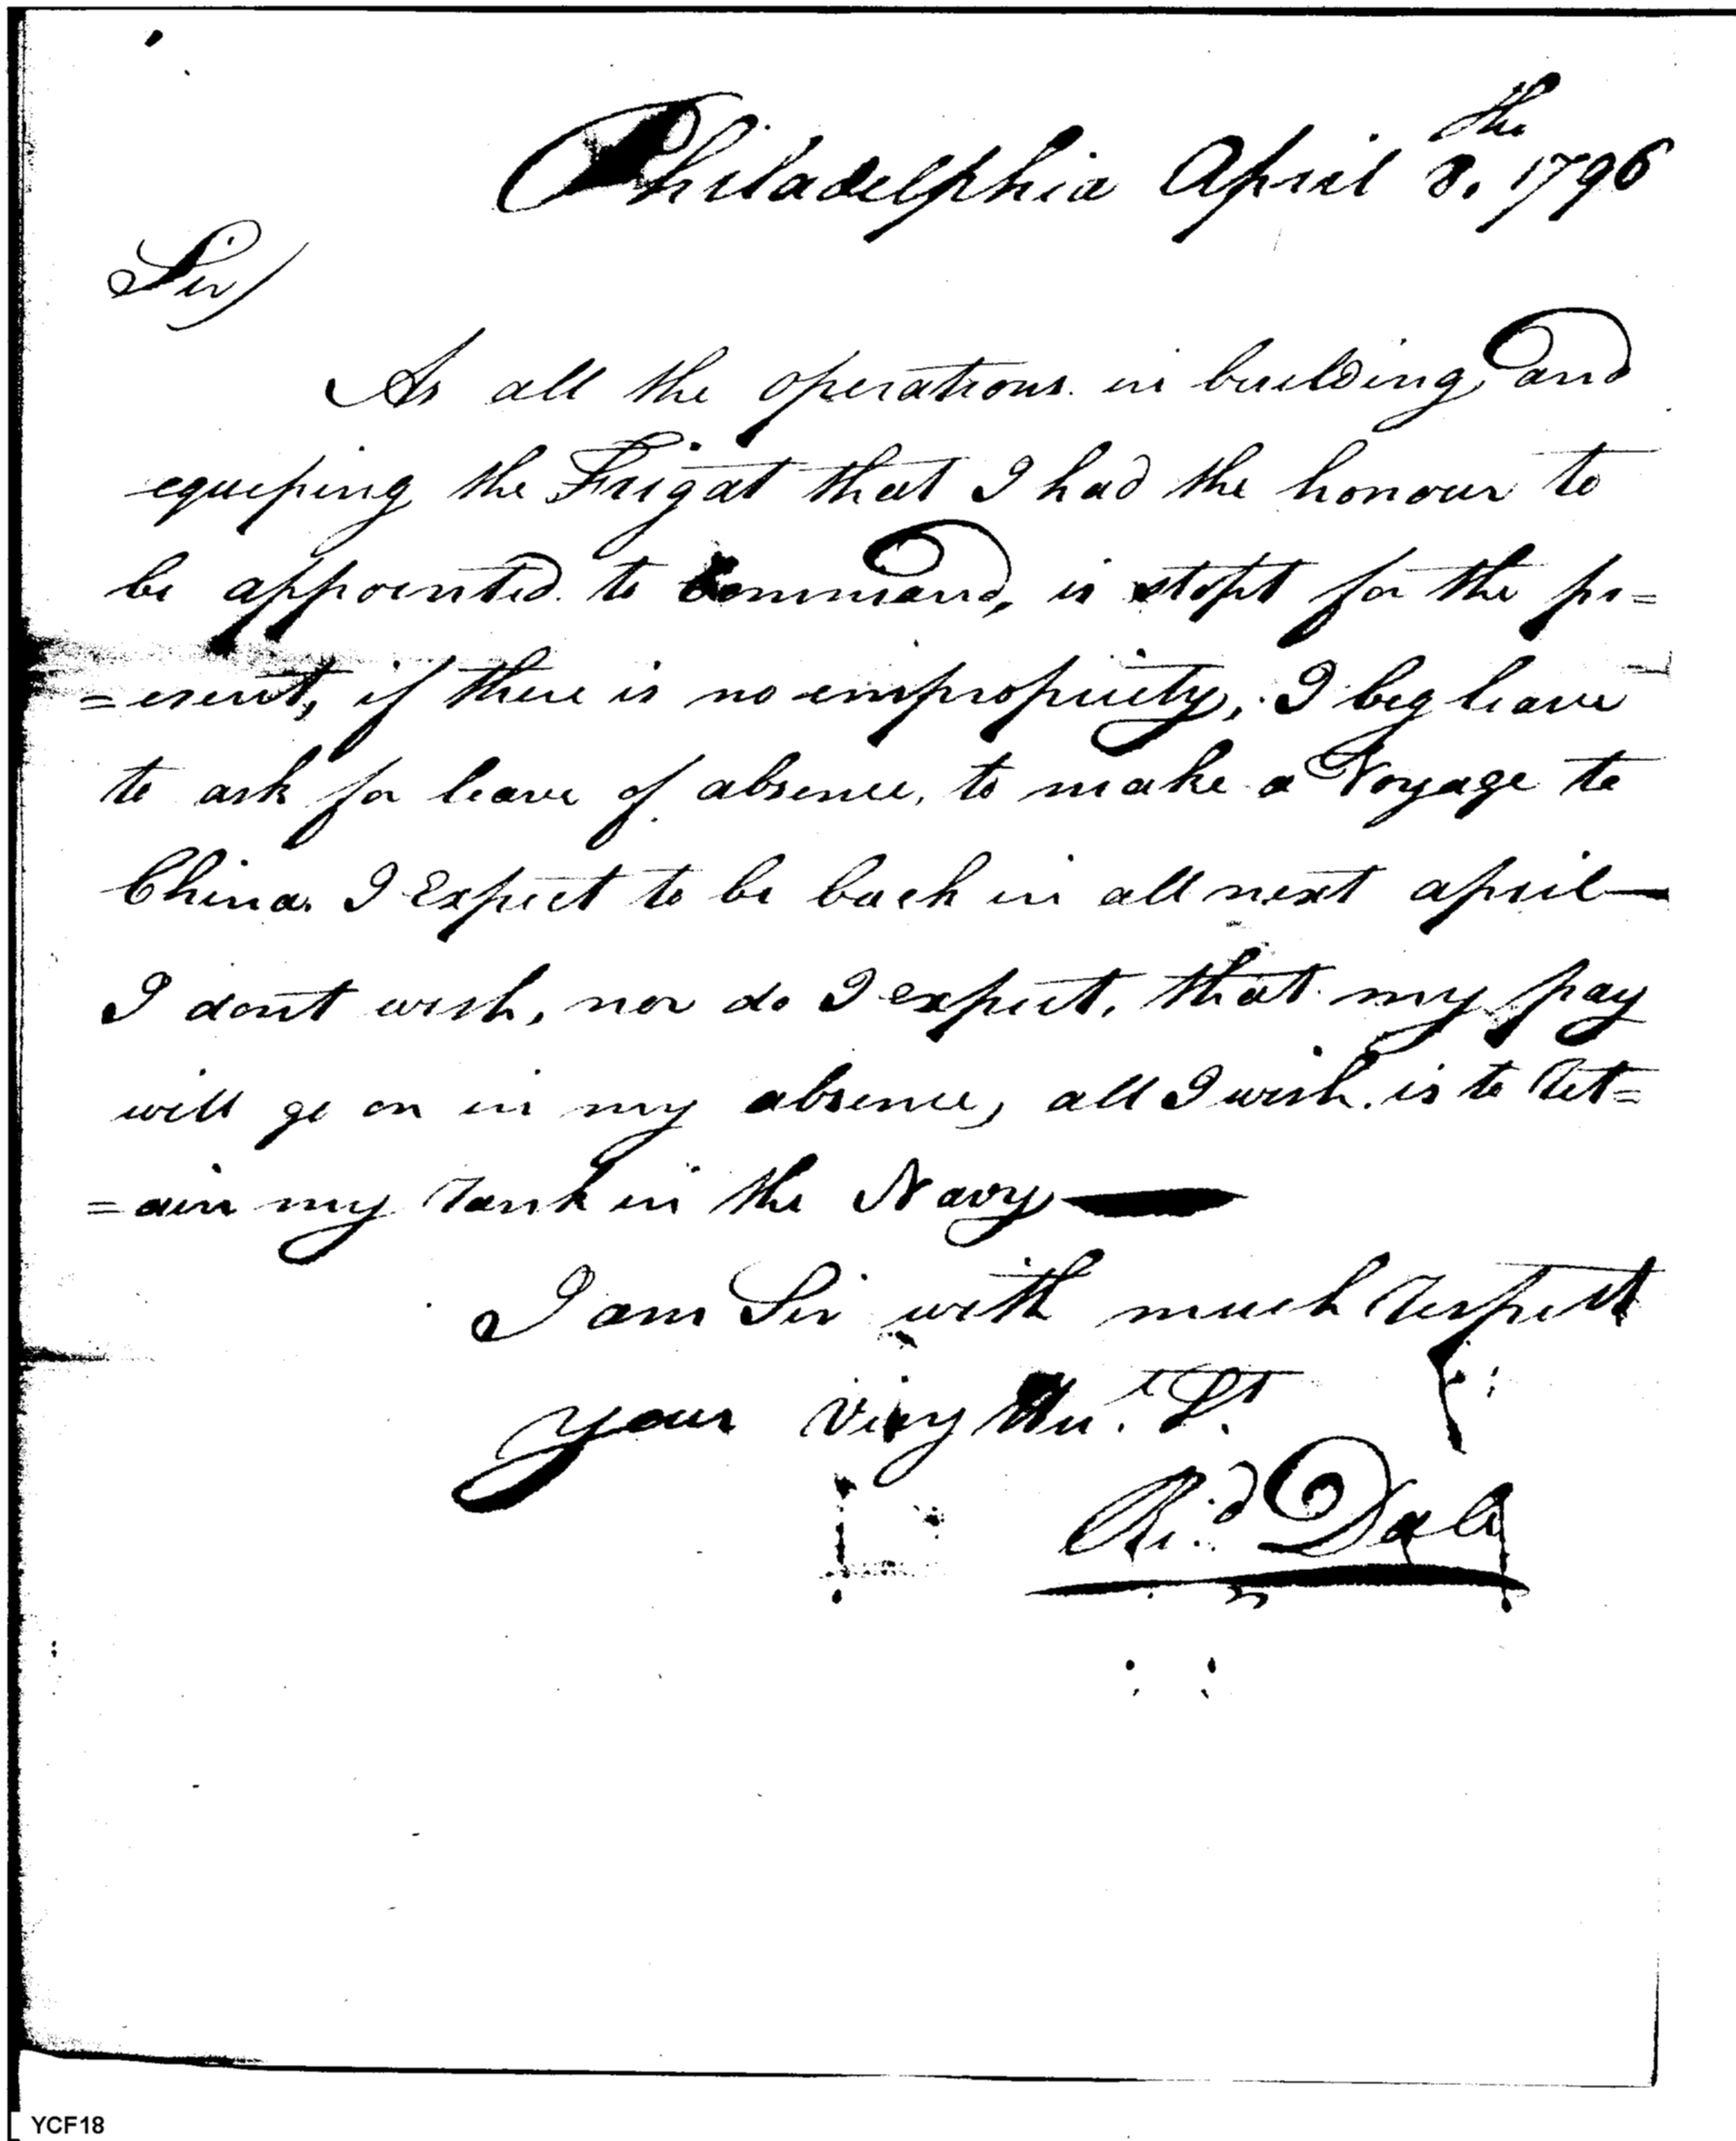 Philadelphia April 8.the 1796
Sir)
As all the operations in building, and
equiping the Frigat that I had the honour to
be appointed to Command, is stopt for the pr=
=esent, if there is no impropriety, I beg leave
to ask for leave of absence, to make a Voyage to
China. I Expect to be back in all next april—
I dont wish, nor do I expect, that my pay
will go on in my absence, all I wish is to ret=
=ain my rank in the Navy—
I am Sir with much respect
your very Hu.t St.
Ri.d Dale
YCF18